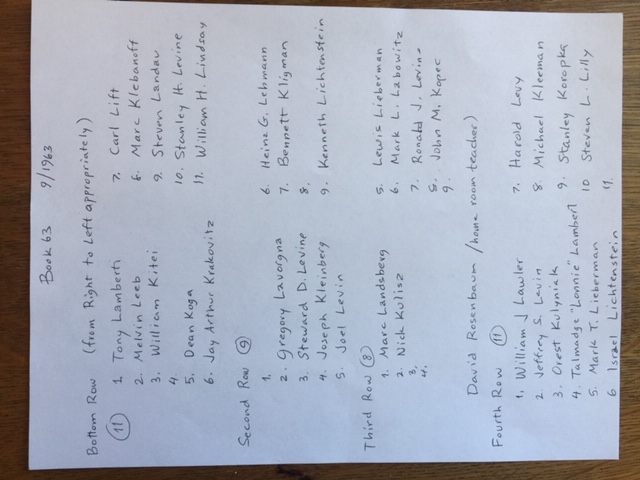 Book 63 9/1963
Bottom Row (from Right to Left appropriately)
(11)
1. Tony Lamberti
2. Melvin Leeb
3. William Kitei
4.
5. Dean Koga
6. Jay Arthur Krakovitz
7. Carl Lift
6. Marc Klebanoff
9. Steven Landau
10. Stanley H. Levine
11. William H. Lindsay
Second Row (9)
1.
2. Gregory Lavorgna
3. Steward D. Levine
4. Joseph Kleinberg
5. Joel Levin
6. Heinz G. Lehmann
7. Bennett Kligman
8.
9. Kenneth Lichtenstein
Third Row (8)
1. Marc Landsberg
2. Nick Kulisz
3.
4.
5. Lewis Lieberman
6. Mark L. Labowitz
7. Ronald J. Levine
8. John M. Kopec
9.
David Rosenbaum /home room teacher)
Fourth Row (11)
1. William J Lawler
2. Jeffrey S. Levin
3. Orest Kulyniak
4. Talmadge "Lonnie" Lambert
5. Mark T. Lieberman
6 Israel Lichtenstein
7. Harold Levy
8 Michael Kleeman
9. Stanley Koropka
10 Steven L. Lilly
11.